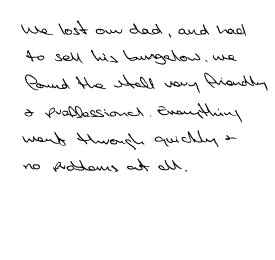 We lost our dad, and had
to sell his bungalow. We
found the staff very friendly
& proffessional. Everything
went through quickly &
no problems at all.